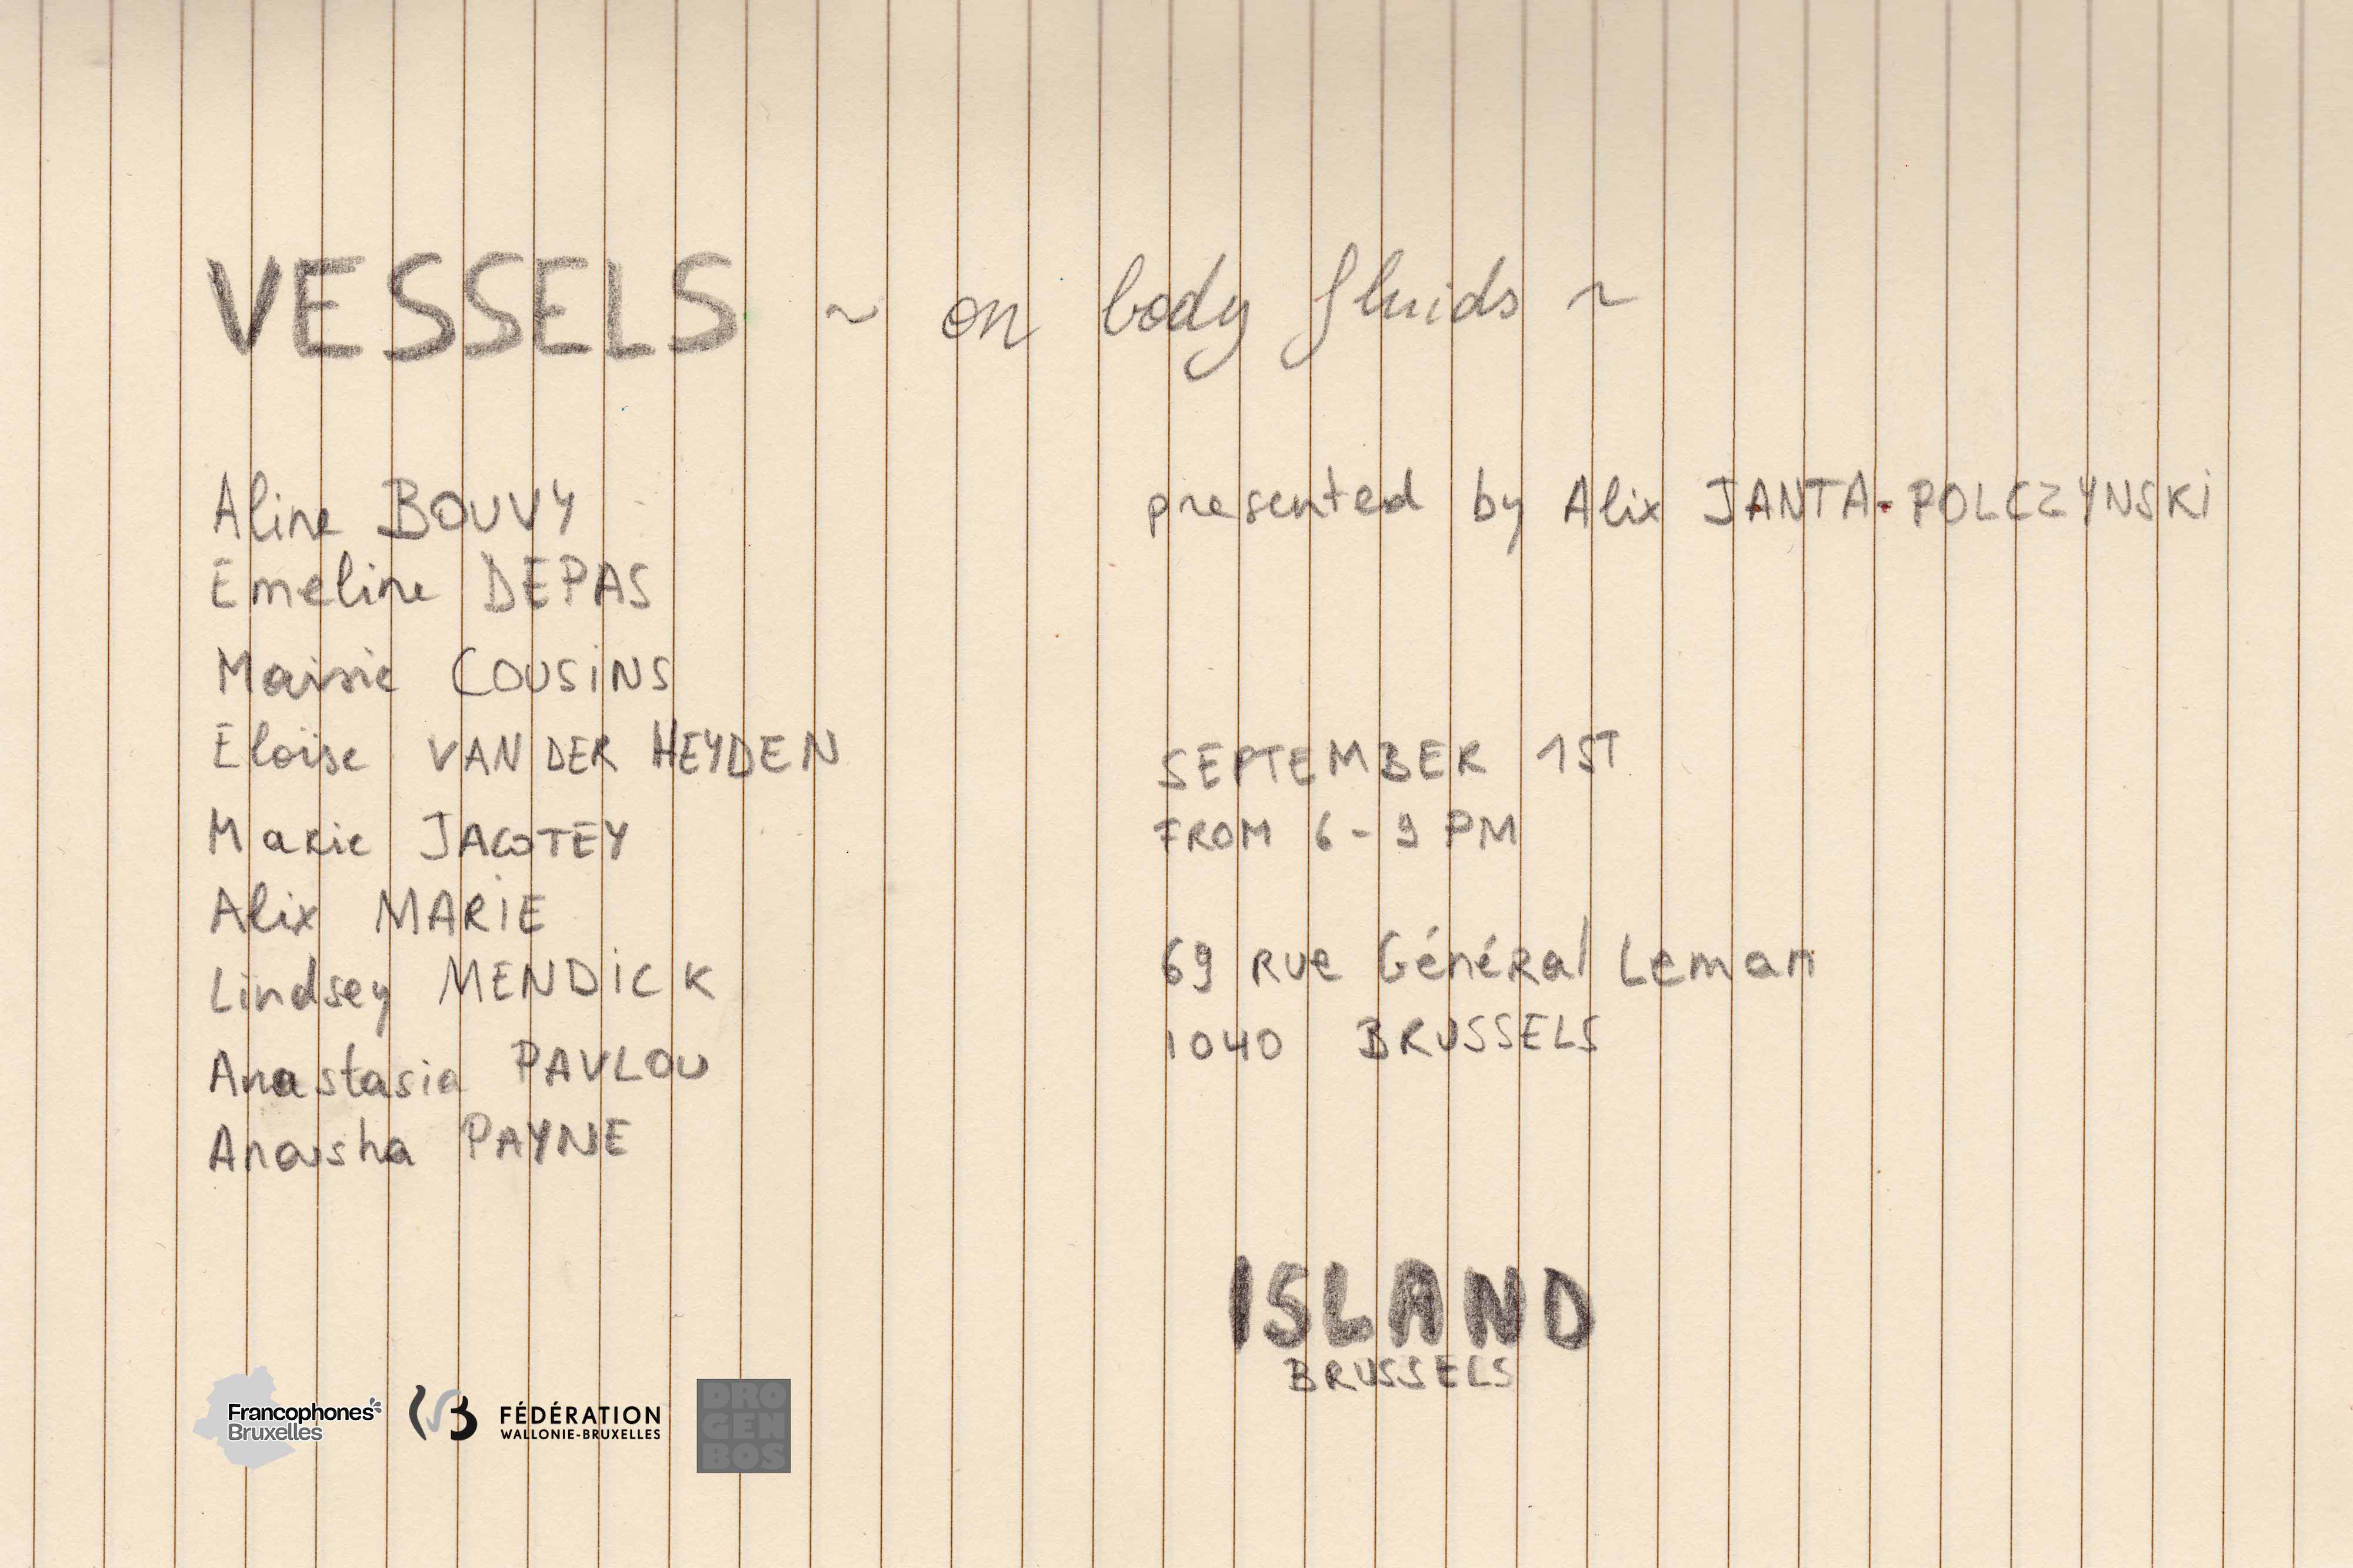 VESSELS ~ on body fluids ~
Aline BOUVY
Emeline DEPAS
Maisie COUSINS
Eloïse VAN DER HEYDEN
Marie JACOTEY
Alix MARIE
Lindsey MENDICK
Anastasia PAVLOU
Anousha PAYNE
presented by Alix JANTA-POLCZYNSKI
SEPTEMBER 1ST
FROM 6 - 9 PM
69 RUE Général Leman
1040 BRUSSELS
ISLAND
BRUSSELS
Francophones
Bruxelles
FÉDÉRATION
WALLONIE-BRUXELLES
DRO
GEN
BOS